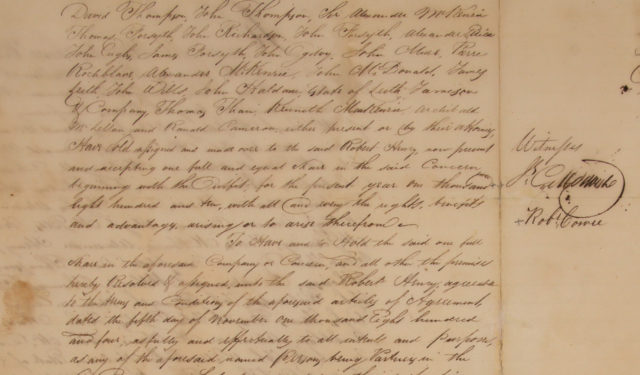 David Thompson, John Thompson, Sir Alexander McKenzie
Thomas Forsyth, John Richardson, John Forsyth, Alexander
John Inglis, James Forsyth, John Ogilvy, John Mure, Pierre
Rocheblave, Alexander McKenzie, John McDonald, James
Leith, John Wills, John Haldane, of Leith Jameson
& Company, Thomas Thain, Kenneth MacKenzie, Archibald
McLellan, and Ronald Cameron, either present or by their Attorney,
Have Sold assigned and made over to the said Robert Henry, now present
and accepting one full and equal share in the said Concern
beginning with the Outfit, for the present year one thousand
eight hundred and ten, with all and every the rights, benefits
and advantage, arising or to arise therefrom
To Have and to Hold the said one full
share in the aforesaid Company or Concern, and all other the premises
hereby Resolved & assigned, unto the said Robert Henry, agreeable
to the terms and Conditions of the aforesaid articles of Agreement
dated the fifth day of November one thousand Eight hundred
and four, as fully and effectually to all intents and Purposes,
as any of the aforesaid, named Persons being Partners, in the
Witnesses
Robt Cowie